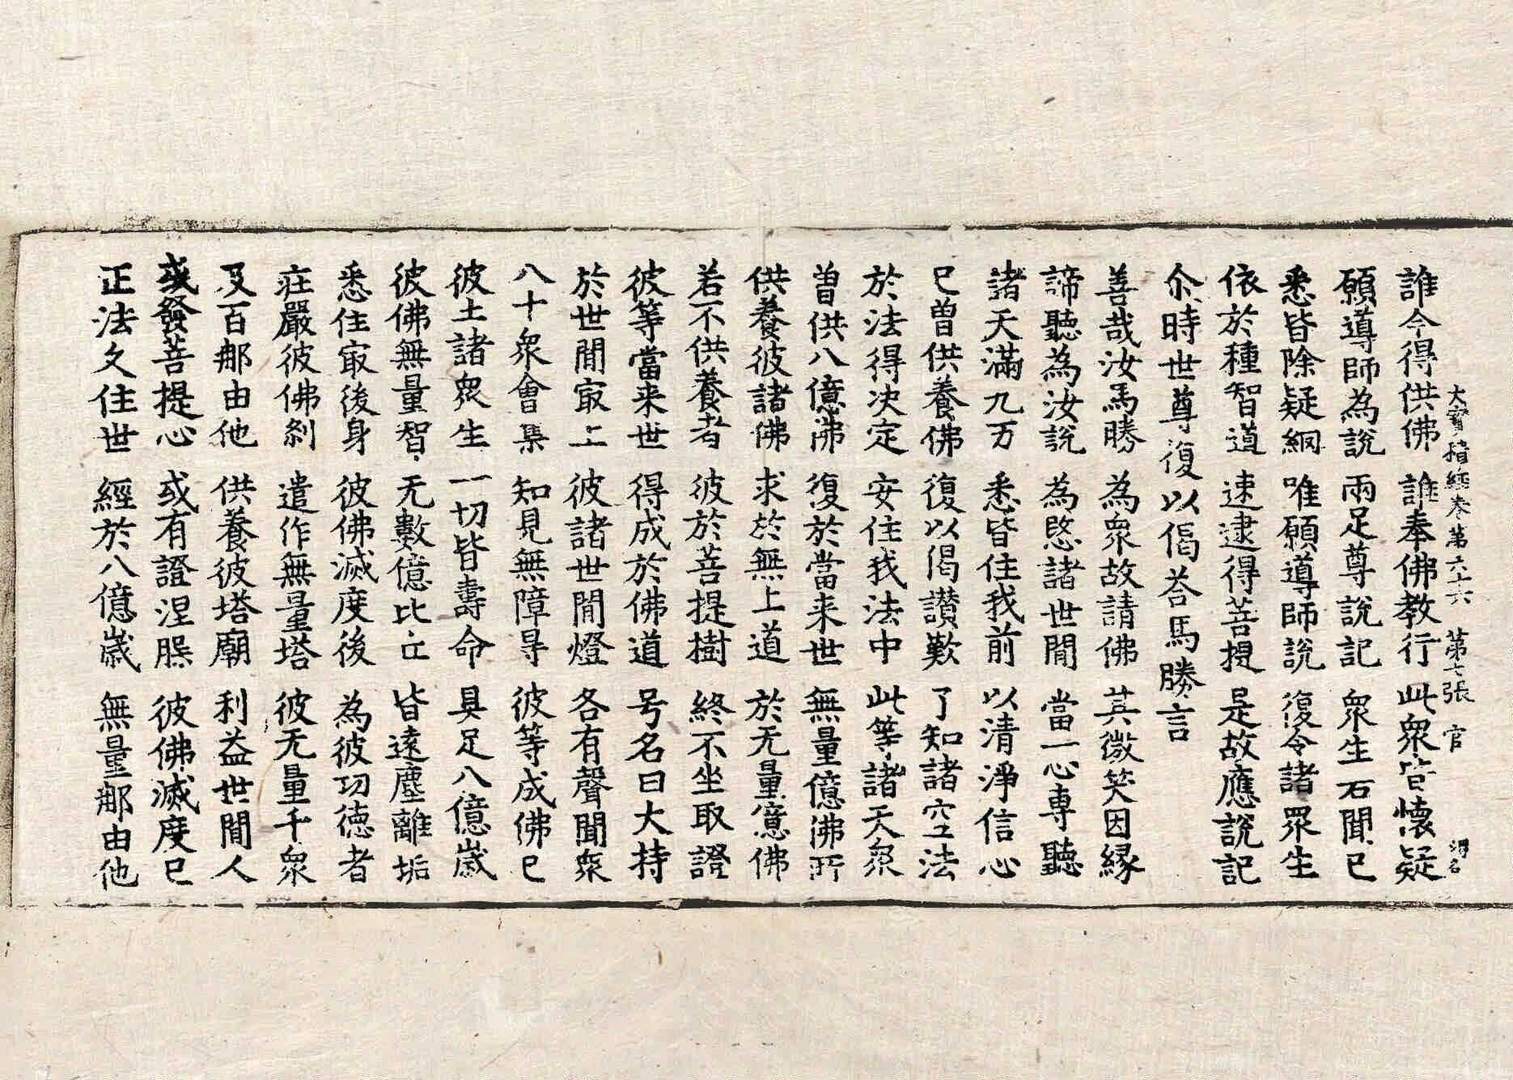 大寶積經卷第六十六 第七張 官
誰今得供佛 誰奉佛教行 此衆皆懷疑
願導師為說 兩足尊說記 衆生若聞已
悉皆除疑網 唯願導師說 復令諸眾生
依於種智道 速逮得菩提 是故應說記
尒時世尊復以偈荅馬勝言
善哉汝馬勝 為衆故請佛 其微笑因縁
諦聽為汝說 為愍諸世間 當一心専聽
諸天滿九万 悉皆住我前 以清淨信心
已曽供養佛 復以偈讃歎 了知諸空法
於法得决定 安住我法中 此等諸天衆
曽供八億佛 復於當来世 無量億佛所
供養彼諸佛 求於無上道 於无量億佛
若不供養者 彼於菩提樹 終不坐取證
彼等當来世 得成於佛道 号名曰大持
於世間㝡上 彼諸世間燈 各有聲聞衆
八十衆會集 知見無障㝵 彼等成佛已
彼土諸眾生 一切皆壽命 具足八億歲
彼佛無量智 无數億比丘 皆遠塵離垢
悉住㝡後身 彼佛滅度後 為彼功徳者
莊嚴彼佛刹 遣作無量塔 彼无量千衆
及百那由他 供養彼塔廟 利益世間人
或發菩提心 或有證涅槃 彼佛滅度已
正法久住世 經於八億歲 無量那由他